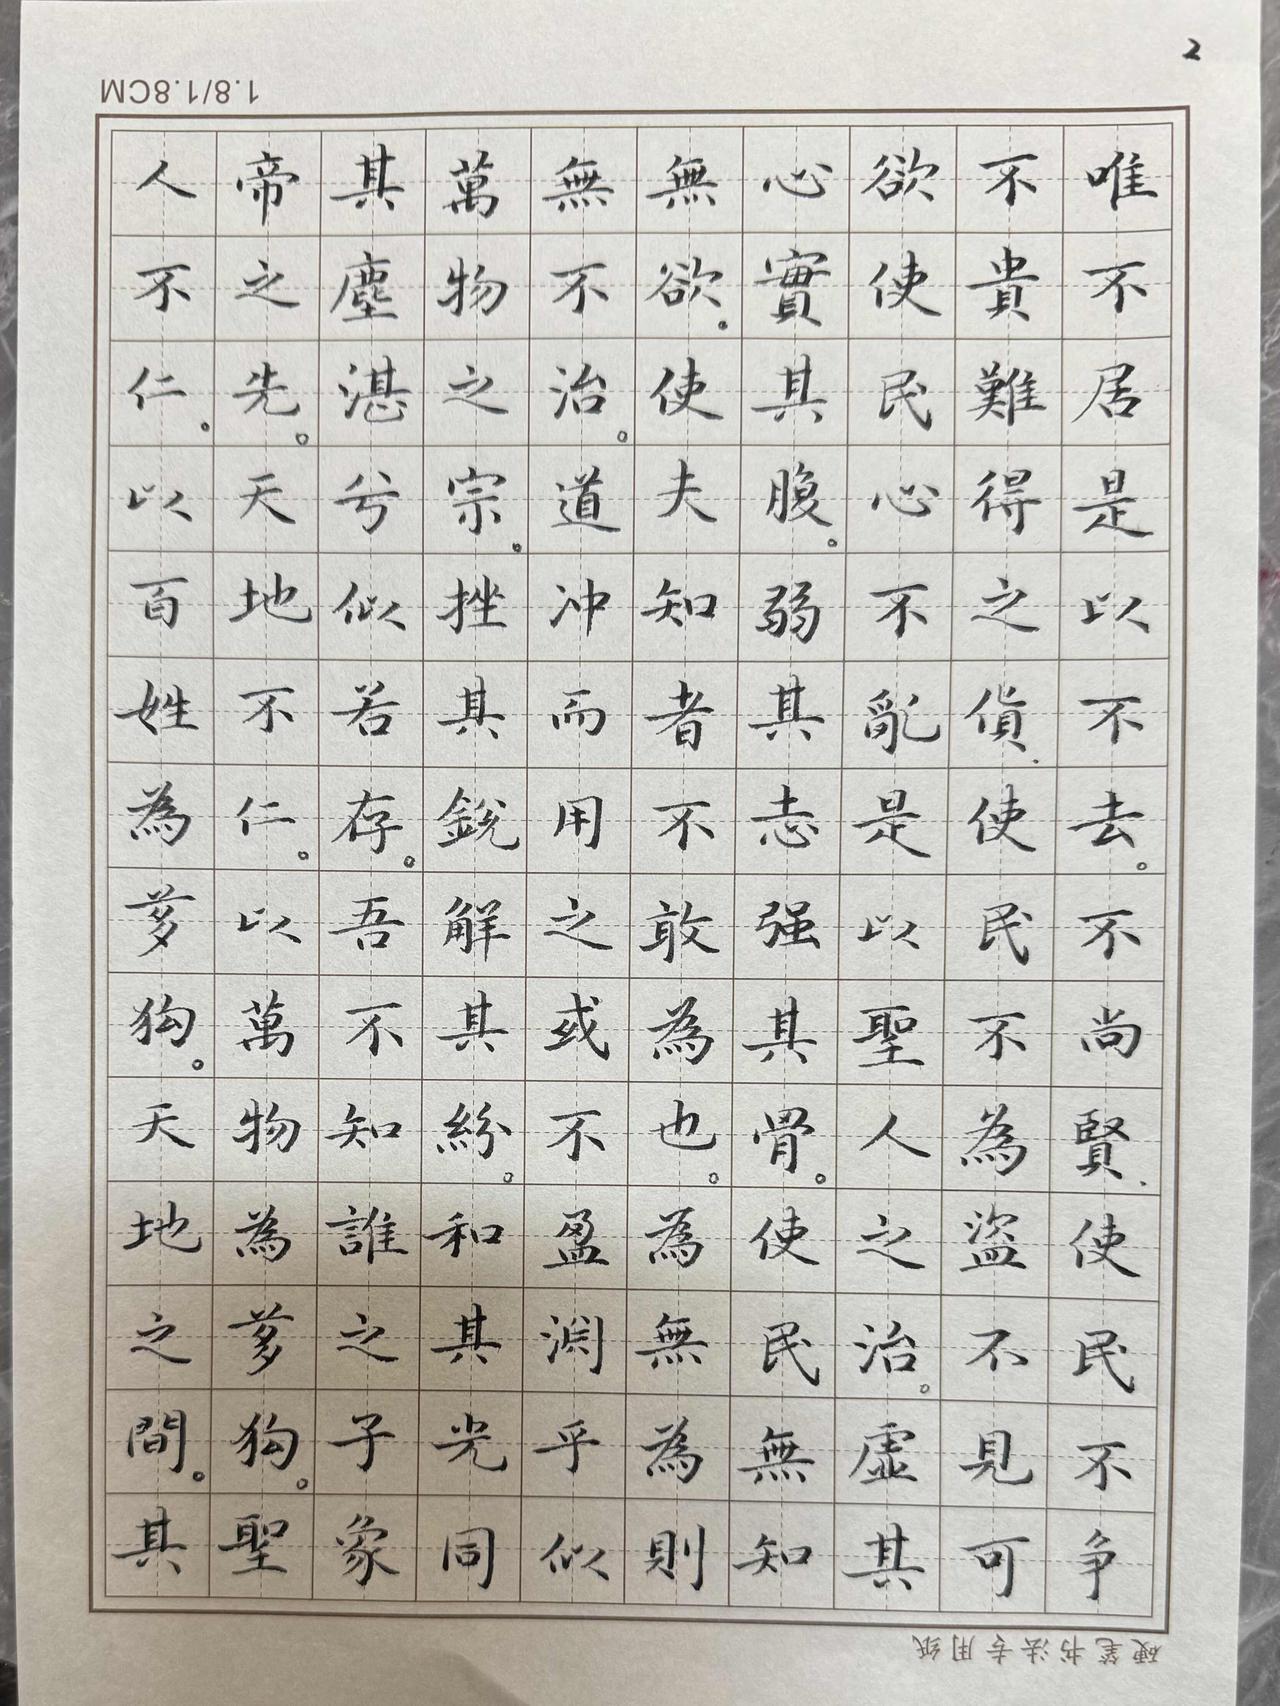 2
1.8/1.8CM
唯不居是以不去。不尚賢、使民不争
不貴難得之貨、使民不為盜不見可
欲使民心不亂是以聖人之治。虛其
心實其腹。弱其志强其骨。使民無知
無欲。使夫知者不敢為也。為無為則
無不治。道冲而用之或不盈淵乎似
萬物之宗。挫其銳解其紛。和其光同
其塵湛兮似若存。吾不知誰之子象
帝之先。天地不仁。以萬物為芻狗。聖
人不仁。以百姓為芻狗。天地之間。其
硬笔书法专用纸